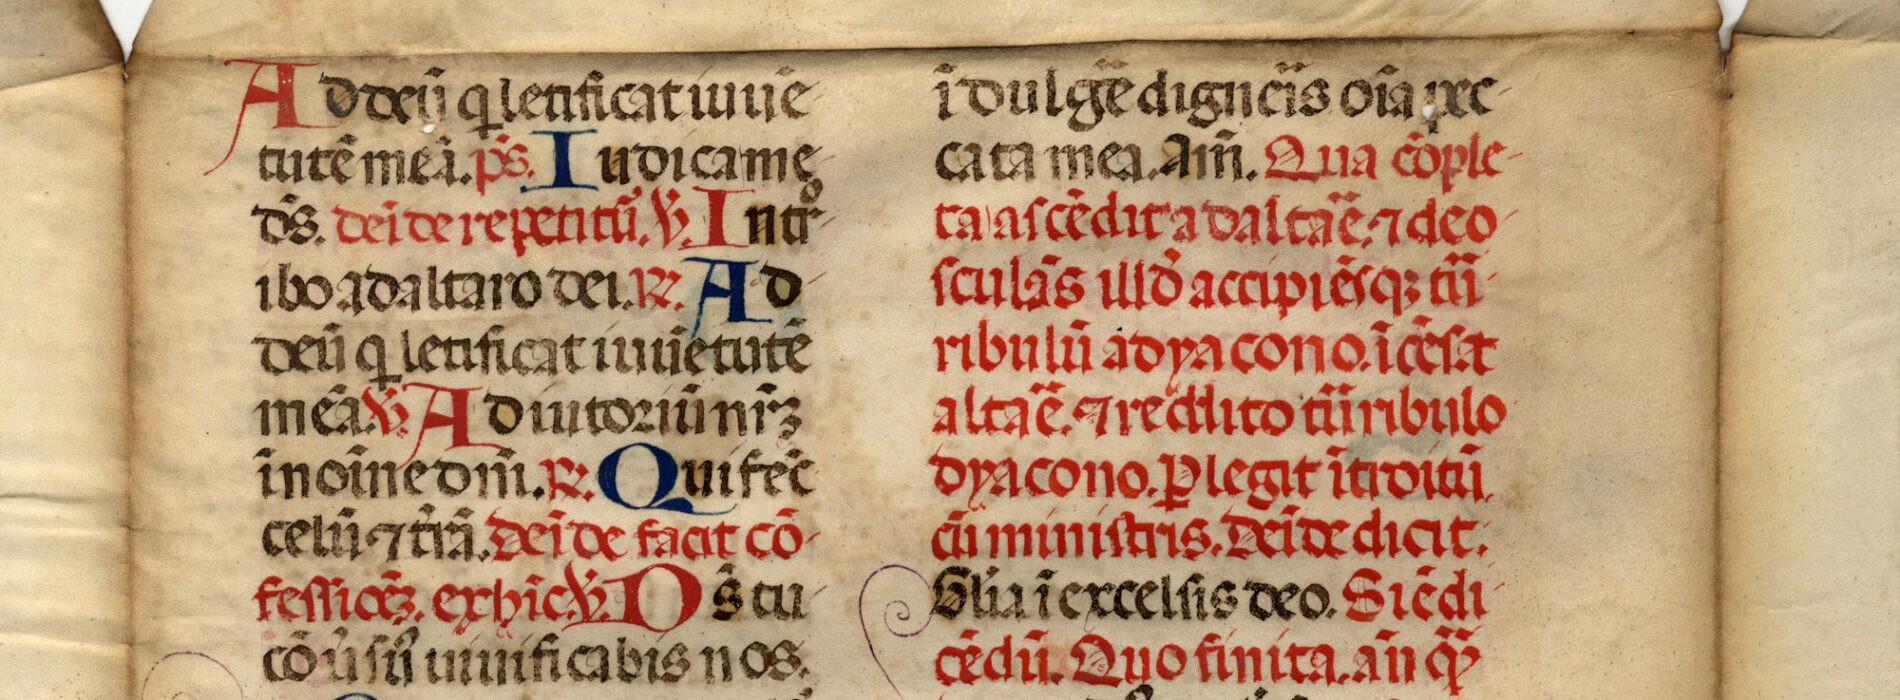 Ad deū q letificat iuuē
tutē meā. ps̄. Iudica me
ds̄. deīde repetitū. V. Intro
ibo ad altaro dei. R. Ad
deū q letificat iuuētutē
meā. V. Adiutoriū nr̄ꝫ
ī noīne dnī. R. Qui fec̄
celū ⁊ tr̄ā. Deīde facit cō
fessioēꝫ. ex hīc. V. Ds̄ tu
cōuſus uiuificabis nos.
īdulgē dignēis oīa pec
cata mea. Am̄. Qua cōple
ta ascēdit ad altāe. ⁊ deo
sculās illd̄ accipiēsqꝫ tū
ribulū a dyacono. īcēsat
altāe. ⁊ reddito tūribulo
dyacono. Plegit ītroitū
cū ministris. Deīde dicit.
Glīa ī excelsis deo. Si ē di
cēdū. Quo finita. an̄ qꝫ